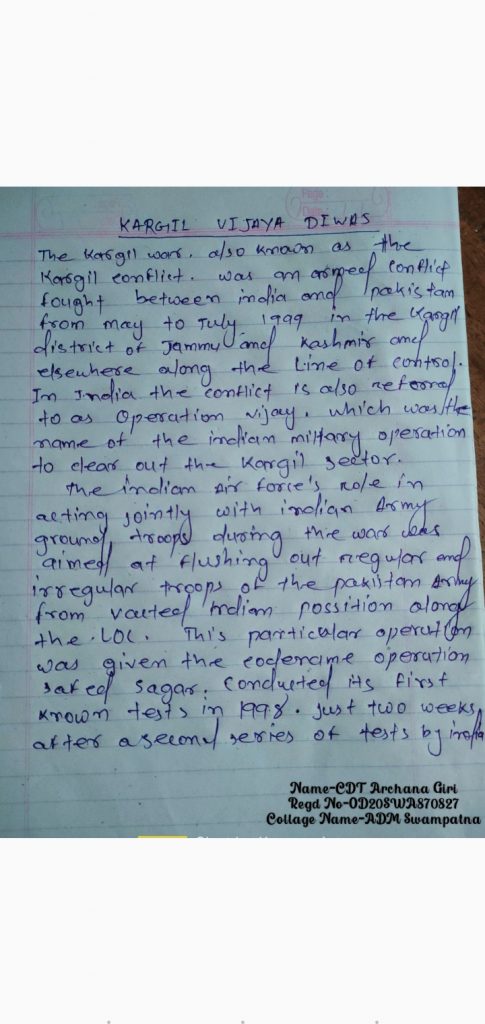 Page:
Date:
KARGIL VIJAYA DIWAS
The Kargil war. also known as the
Kargil conflict. was an armed conflict
fought between india and pakistan
from may to July 1999 in the Kargil
district of Jammu and Kashmir and
elsewhere along the Line of control.
In India the conflict is also referred
to as Operation vijay. which was the
name of the indian military operation
to clear out the Kargil sector.
the indian Air force's role in
acting jointly with indian Army
ground troops during the war was
aimed at flushing out regular and
irregular troops of the pakistan Army
from vacted Indian possition along
the LOC. This particular operation
was given the codename operation
safed sagar. Conducted its first
known tests in 1998. just two weeks
after a second series of tests by india
Name-CDT Archana Giri
Regd No-OD20SWA870827
Collage Name-ADM Swampatna